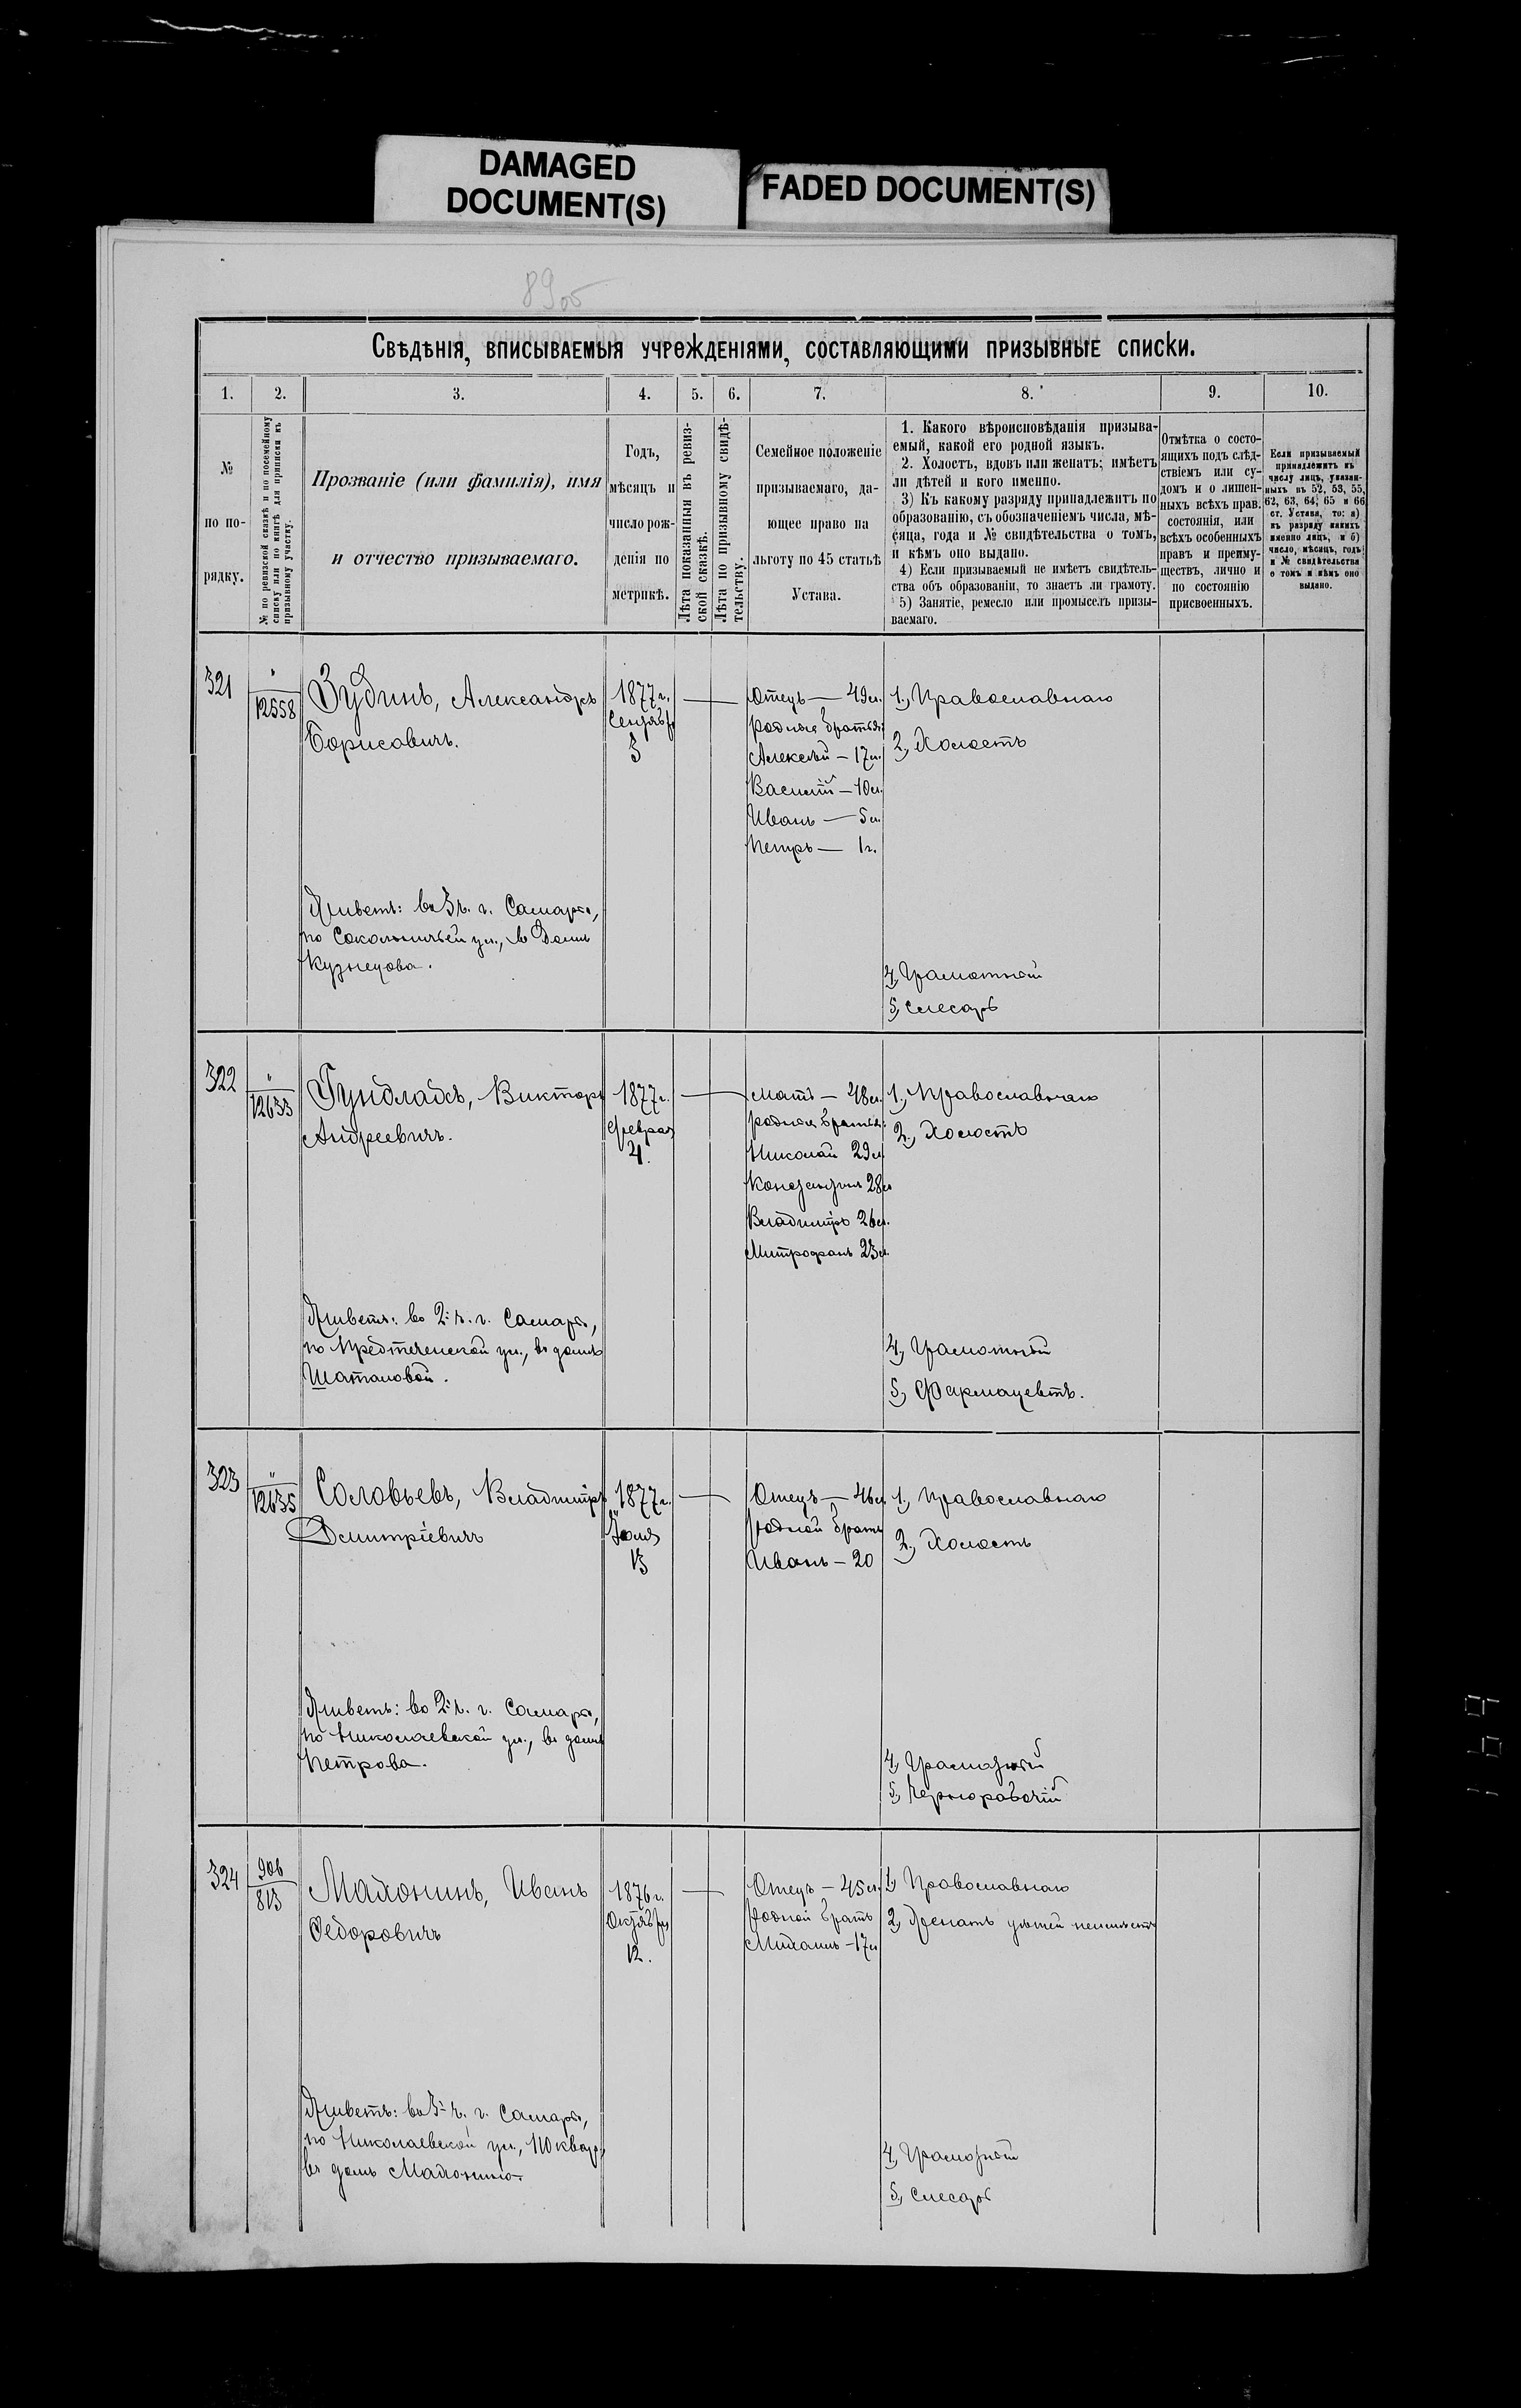 DAMAGED
DOCUMENT(S)
FADED DOCUMENT(S)
89об
Свѣдѣнія, вписываемыя учрежденіями, составляющими призывные списки.
1. 2. 3. 4. 5. 6. 7. 8. 9. 10.
№
по по-
рядку.
№ по ревизской сказкѣ и по посемейному
списку или по книгѣ для приписки къ
призывному участку.
Прозваніе (или фамилія), имя
и отчество призываемаго.
Годъ,
мѣсяцъ и
число рож-
денія по
метрикѣ.
Лѣта показанныя въ ревиз-
ской сказкѣ.
Лѣта по призывному свидѣ-
тельству.
Семейное положеніе
призываемаго, да-
ющее право на
льготу по 45 статьѣ
Устава.
1. Какого вѣроисповѣданія призыва-
емый, какой его родной языкъ.
2. Холостъ, вдовъ или женатъ; имѣетъ
ли дѣтей и кого именно.
3) Къ какому разряду принадлежитъ по
образованію, съ обозначеніемъ числа, мѣ-
сяца, года и № свидѣтельства о томъ,
и кѣмъ оно выдано.
4) Если призываемый не имѣетъ свидѣтель-
ства объ образованіи, то знаетъ ли грамоту.
5) Занятіе, ремесло или промыселъ призы-
ваемаго.
Отмѣтка о состо-
ящихъ подъ слѣд-
ствіемъ или су-
домъ и о лишен-
ныхъ всѣхъ прав.
состоянія, или
всѣхъ особенныхъ
правъ и преиму-
ществъ, лично и
по состоянію
присвоенныхъ.
Если призываемый
принадлежитъ къ
числу лицъ, указан-
ныхъ въ 52, 53, 55,
62, 63, 64, 65 и 66
ст. Устава, то: а)
къ разряду какихъ
именно лицъ, и б)
число, мѣсяцъ, годъ
и № свидѣтельства
о томъ и кѣмъ оно
выдано.
321
"
12558
Зудинъ, Александръ
Борисовичъ.
Живетъ: въ 3 ч. г. Самары,
по Сокольничьей ул., въ домѣ
Кузнецова.
1877 г.
Сентябр
3
Отецъ — 49 л.
родные братья:
Алексѣй — 17 л.
Василій — 10 л.
Иванъ — 5 л.
Петръ — 1 г.
1., Православнаго
2., Холостъ
4., Грамотный
5, Слесарь
322
"
12633
Гундладсъ, Викторъ
Андреевичъ.
Живетъ: во 2й ч. г. Самары,
по Предтеченской ул., въ домѣ
Шаталовой.
1877 г.
Феврал
4.
Мать — 48 л.
родные братья:
Николай 29 л.
Константинъ 28 л
Владиміръ 26 л.
Митрофанъ 23 л.
1., Православнаго
2., Холостъ
4., Грамотный
5, Фармацевтъ.
323
"
12635
Соловьевъ, Владиміръ
Дмитріевичъ
Живетъ: во 2й ч. г. Самары,
по Николаевской ул., въ домѣ
Петрова.
1877 г.
13
Отецъ — 46 л
родной братъ
Иванъ — 20
1., Православнаго
2., Холостъ
4, Грамотный
5, Чернорабочій
324
906
813
Малонинъ, Иванъ
Федоровичъ
Живетъ: въ 3й ч. г. Самары,
по Николаевской ул., 110 кварт.
въ домѣ Малонина.
1876 г.
Октябр
12.
Отецъ — 45 л.
Родной братъ
Михаилъ — 17 л
1, Православнаго
2, Женатъ дѣтей неимѣетъ
4, Грамотный
5, Слесарь
169